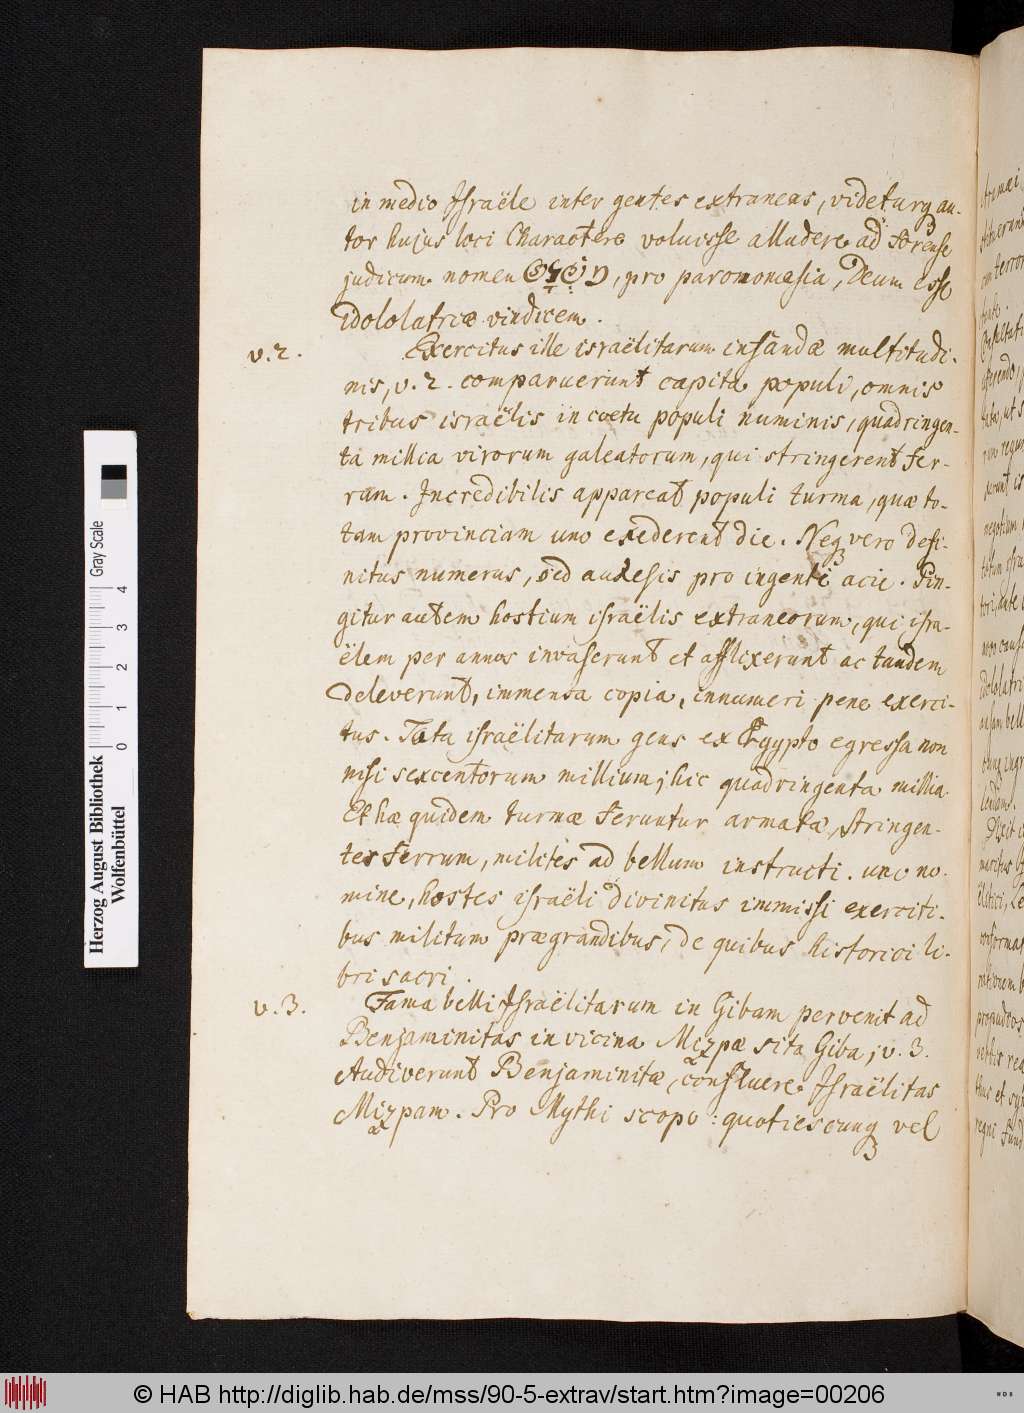 in medio Israële inter gentes extraneas, videturq au-
tor hujus loci Charactere voluisse alludere ad forense
judicum nomen , pro paronomasia, Deum esse
idololatriæ vindicem.
v. 2. Exercitus ille israëlitarum infandæ multitudi-
nis, v. 2. comparuerunt capita populi, omnis
tribus israëlis in coetu populi numinis, quadringen-
ta millia virorum galeatorum, qui stringerent fer-
rum. Incredibilis appareat populi turma, quæ to-
tam provinciam uno exederent die. Neq vero defi-
nitus numerus, sed auxesis pro ingenti acie. Fin-
gitur autem hostium israëlis extraneorum, qui isra-
ëlem per annos invaserunt et afflixerunt ac tandem
deleverunt, immensa copia, innumeri pene exerci-
tus. Tota israëlitarum gens ex Ægypto egressa non
nisi sexcentorum millium; hic quadringenta millia
Et hæ quidem turmæ feruntur armatæ, stringen-
tes ferrum, milites ad bellum instructi. uno no-
mine, hostes israëli divinitus immissi exerciti-
bus militum prægrandibus, de quibus historici li-
bri sacri.
v. 3. Fama belli Israëlitarum in Gibam pervenit ad
Benjaminitas in vicina Mizpæ sita Giba; v. 3.
Audiverunt Benjaminitæ, confluere Israëlitas
Mizpam. Pro Mythi scopo: quotiescunq vel
Herzog August Bibliothek
Wolfenbüttel
0 1 2 3 4 Gray Scale
© HAB http://diglib.hab.de/mss/90-5-extrav/start.htm?image=00206